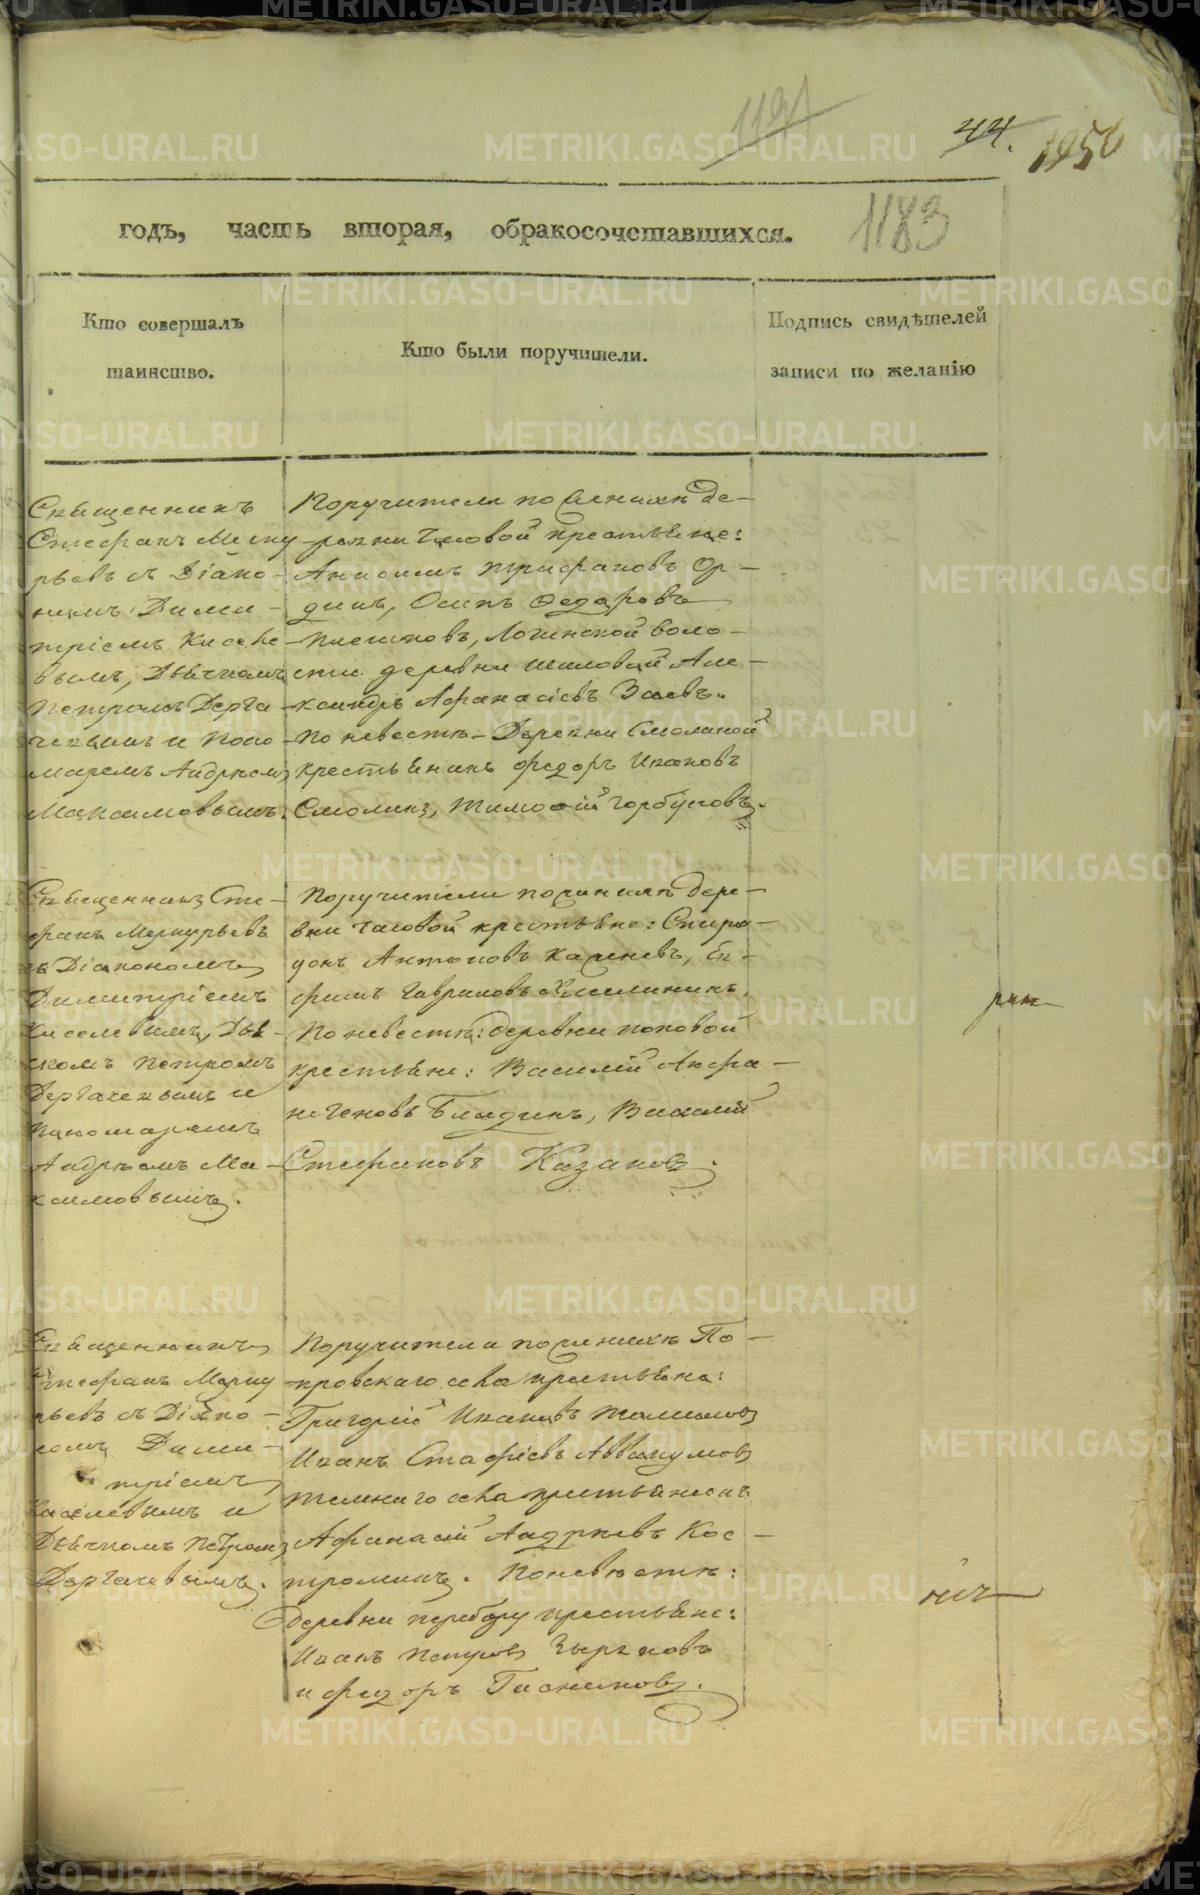 1191
44.
1956
1183
годъ, часть вторая, о бракосочетавшихся.
Кто совершалъ
таинство.
Кто были поручители.
Подпись свидѣтелей
записи по желанію
Священникъ
Стефанъ Мерку
рьевъ съ Діако-
номъ Дими-
тріемъ Киселе-
вымъ, Дьячкомъ
Петромъ Дерга-
чевымъ и Поно-
маремъ Андреемъ
Максимовымъ.
Поручители по женихѣ де-
ревни Часовой крестьяне:
Анисимъ Трифановъ Ор-
динъ, Осипъ Федоровъ
Плешковъ, Логинской воло-
сти деревни Шиловой Але-
ксандръ Афанасіевъ Заевъ.
По невестѣ - Деревни Смолиной
крестьянинъ Федоръ Ивановъ
Смолинъ, Тимофій Горбуновъ.
Священникъ Сте-
фанъ Меркурьевъ
съ Діакономъ
Димитріемъ
Киселевымъ, Дья-
чкомъ Петромъ
Дергачевымъ и
Пономаремъ
Андреемъ Ма-
ксимовымъ.
Поручители по женихѣ дере-
вни Часовой крестьяне: Спири-
донъ Антоновъ Качневъ, Ев-
фимъ Гавриловъ
По невестѣ: деревни Поповой
крестьяне: Василій
Василій
Стефановъ Казаковъ.
Священникъ
Стефанъ Мерку
рьевъ съ Діако-
номъ Дими-
тріемъ
Киселевымъ и
Дьячкомъ Петромъ
Дергачевымъ.
Поручители по женихѣ По-
кровскаго села крестьяне:
Григорій Ивановъ
Иванъ Стафіевъ Аввакумовъ
села крестьянинъ
Афанасій Андреевъ Кос-
троминъ. По невестѣ:
деревни Перебору крестьяне:
Иванъ Петровъ Зыряновъ
и Федоръ
METRIKI.GASO-URAL.RU